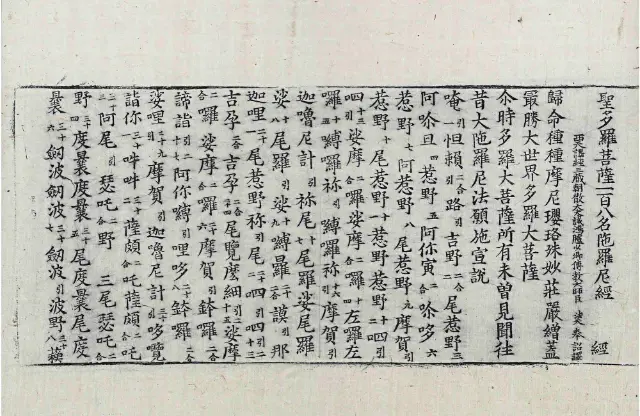 聖多羅菩薩一百八名陁羅尼經 經
西天譯經三藏朝散大夫試鴻臚少卿傳教大師臣法天奉詔譯
歸命種種摩尼瓔珞珠妙莊嚴繒蓋
最勝大世界多羅大菩薩
尒時多羅大菩薩所有未曽見聞往
昔大陁羅尼法願施宣說
唵引一怛賴引二合路引吉野二合尾惹野三
阿吹旦四惹野五阿你寅二合吹哆六
惹野七阿惹野八尾惹野九摩賀引
惹野十尾惹野十一惹野惹野十二呬
呬十三娑摩二合囉娑摩二合囉十四左囉左
囉十五縛囉祢引縛囉祢十六摩賀引
迦嚕尼計引祢尾十七尾羅娑尾羅
娑十八尾羅引娑十九縛曼引二十謨引那
迦哩二十一尾惹野祢引尾二十二呬引呬二十三
吉孕二合吉孕二十四尾覽摩細二十五娑摩
二合囉娑摩二合囉二十六摩賀引鉢囉二合
諦詣二十七阿你縛引哩哆二十八鉢囉二合
娑哩二十九摩賀引迦嚕尼計三十哆覽
詣你三十一吽吽三十二薩頗二合吒薩頗二合吒
三十三阿尾瑟吒二合野三尾瑟吒二合
野三十四度曩度曩三十五尾度曩尾度
曩三十六劒波劒波三十七劒波引波野三十八